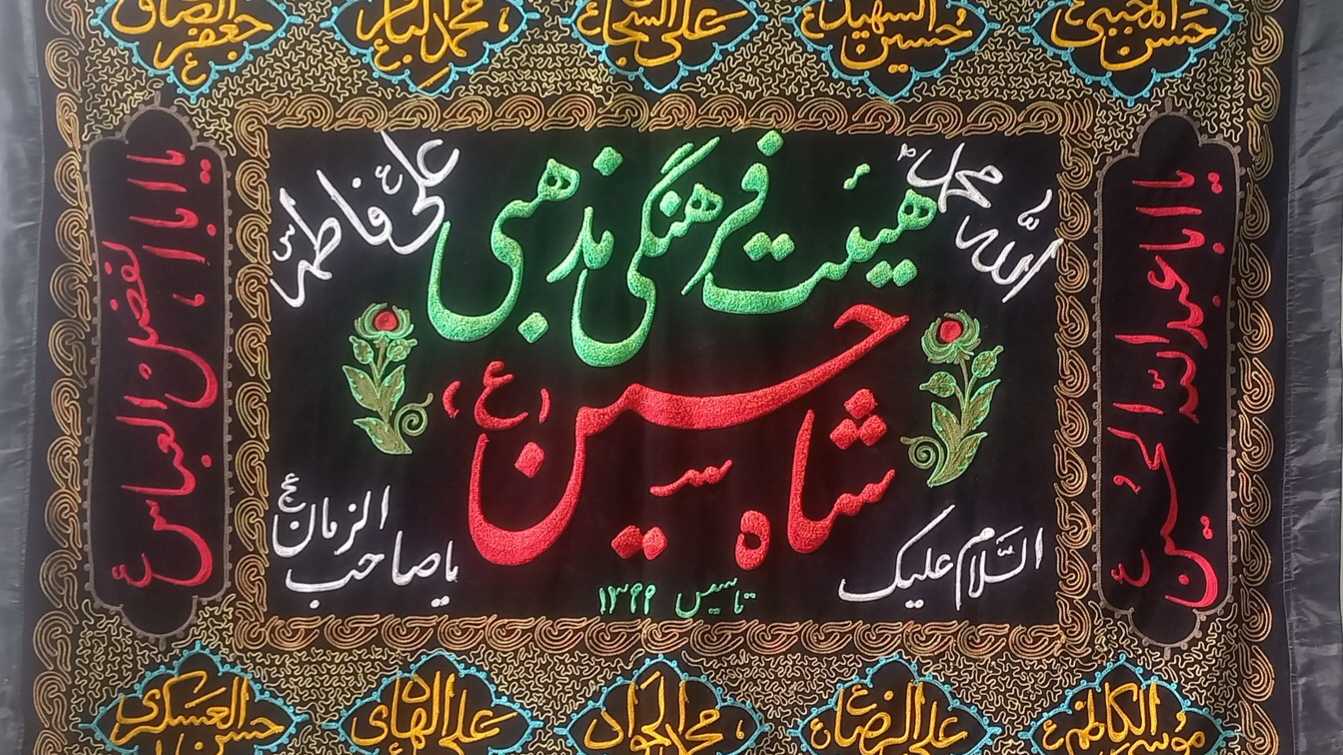 حسن المجتبی ع
حسین الشهید ع
علی السجاد ع
محمد الباقر ع
جعفر الصادق ع
الله محمد ص
علی ع فاطمه س
هیئت فرهنگی مذهبی
شاه حسین (ع)
یا ابا عبدالله الحسین ع
یا ابالفضل العباس ع
السلام علیک
یا صاحب الزمان عج
تاسیس ۱۳۹۹
موسی الکاظم ع
علی الرضا ع
محمد الجواد
علی الهادی
حسن العسکری